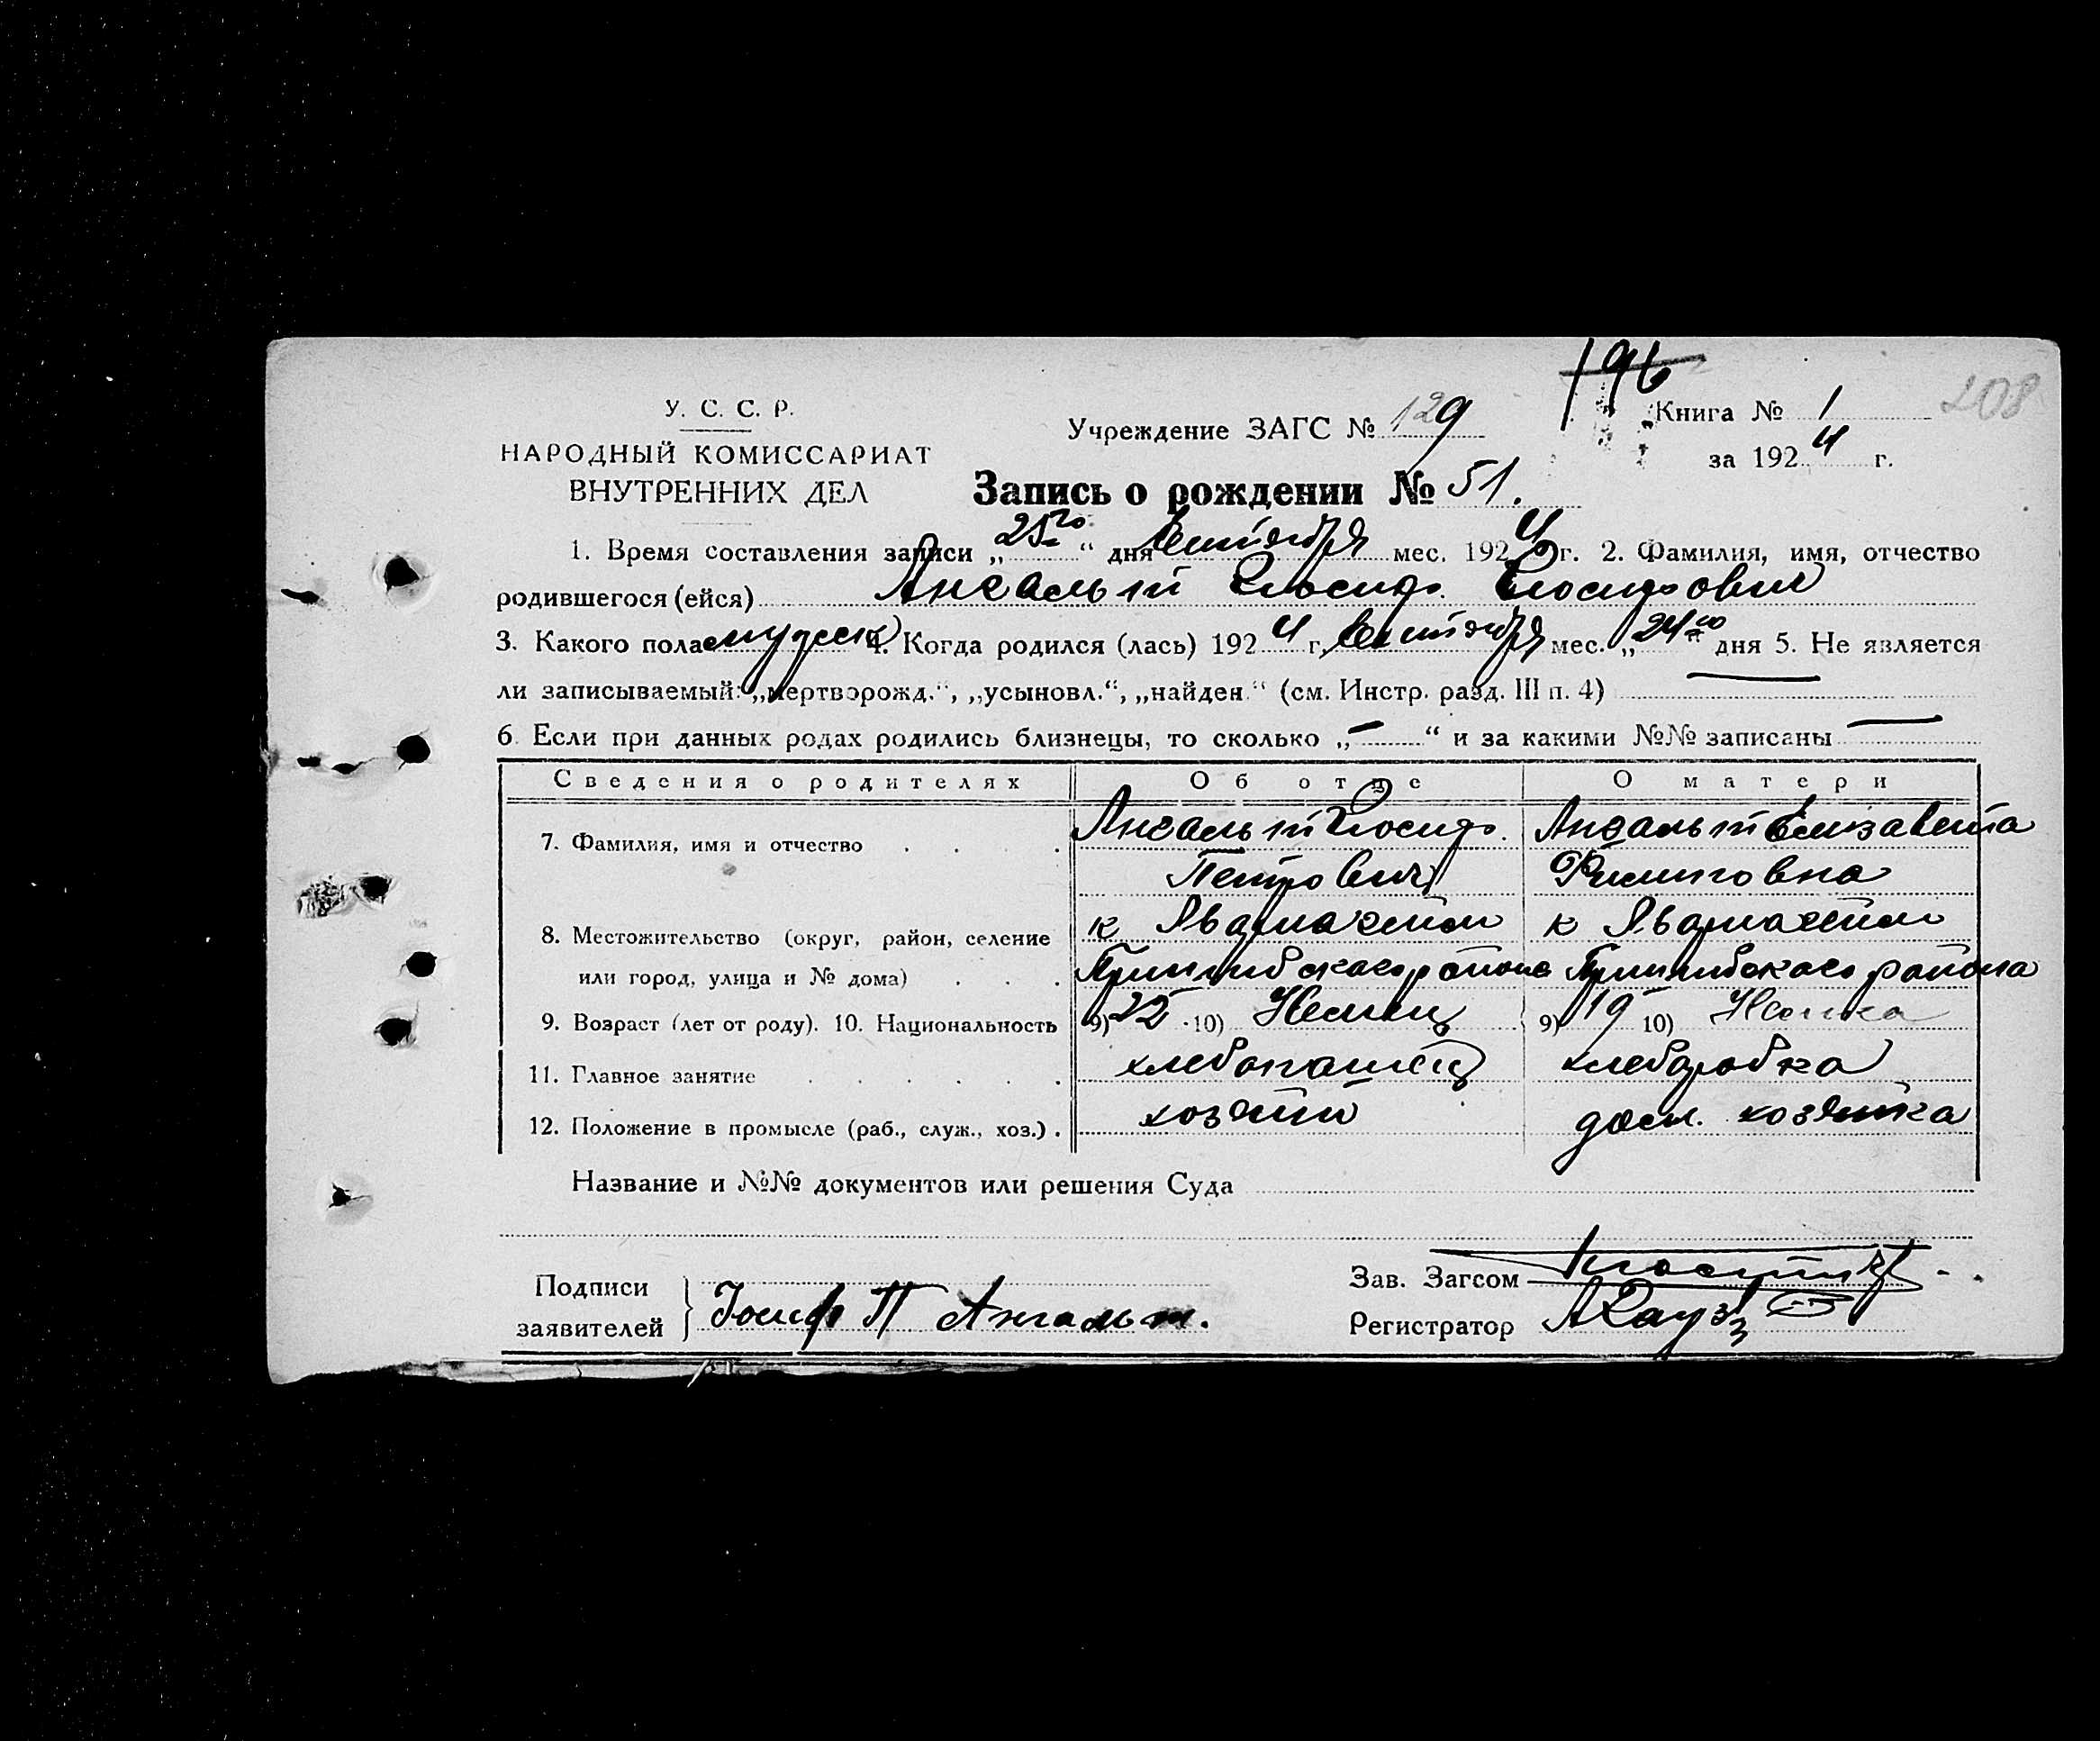 196
208
У. С. С. Р.
НАРОДНЫЙ КОМИССАРИАТ
ВНУТРЕННИХ ДЕЛ
Учреждение ЗАГС № 129
Книга № 1
за 1924 г.
Запись о рождении № 51.
1. Время составления записи „25го“ дня Сентября мес. 1924 г. 2. Фамилия, имя, отчество
родившегося (ейся) Ангальт Иосиф Иосифович
3. Какого пола мужск 4. Когда родился (лась) 1924 г. Сентября мес. „24го“ дня 5. Не является
ли записываемый: „мертворожд.“, „усыновл.“, „найден.“ (см. Инстр. разд. III п. 4) —
6. Если при данных родах родились близнецы, то сколько „—“ и за какими №№ записаны —
Сведения о родителях Об отце О матери
7. Фамилия, имя и отчество Ангальт Иосиф Ангальт Елизавета
Петрович Филиповна
8. Местожительство (округ, район, селение к к
или город, улица и № дома) Пришибского района Пришибского района
9. Возраст (лет от роду). 10. Национальность 9) 22 10) Немец 9) 19 10) Немка
11. Главное занятие хлебопашец хлебаробка
12. Положение в промысле (раб., служ., хоз.) хозяин дом. хозяйка
Название и №№ документов или решения Суда
Подписи
заявителей } Іосиф П Ангальт.
Зав. Загсом
Регистратор